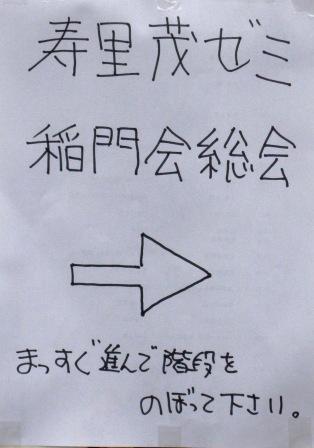 寿里茂ゼミ
稲門会総会
まっすぐ進んで階段を
のぼって下さい。